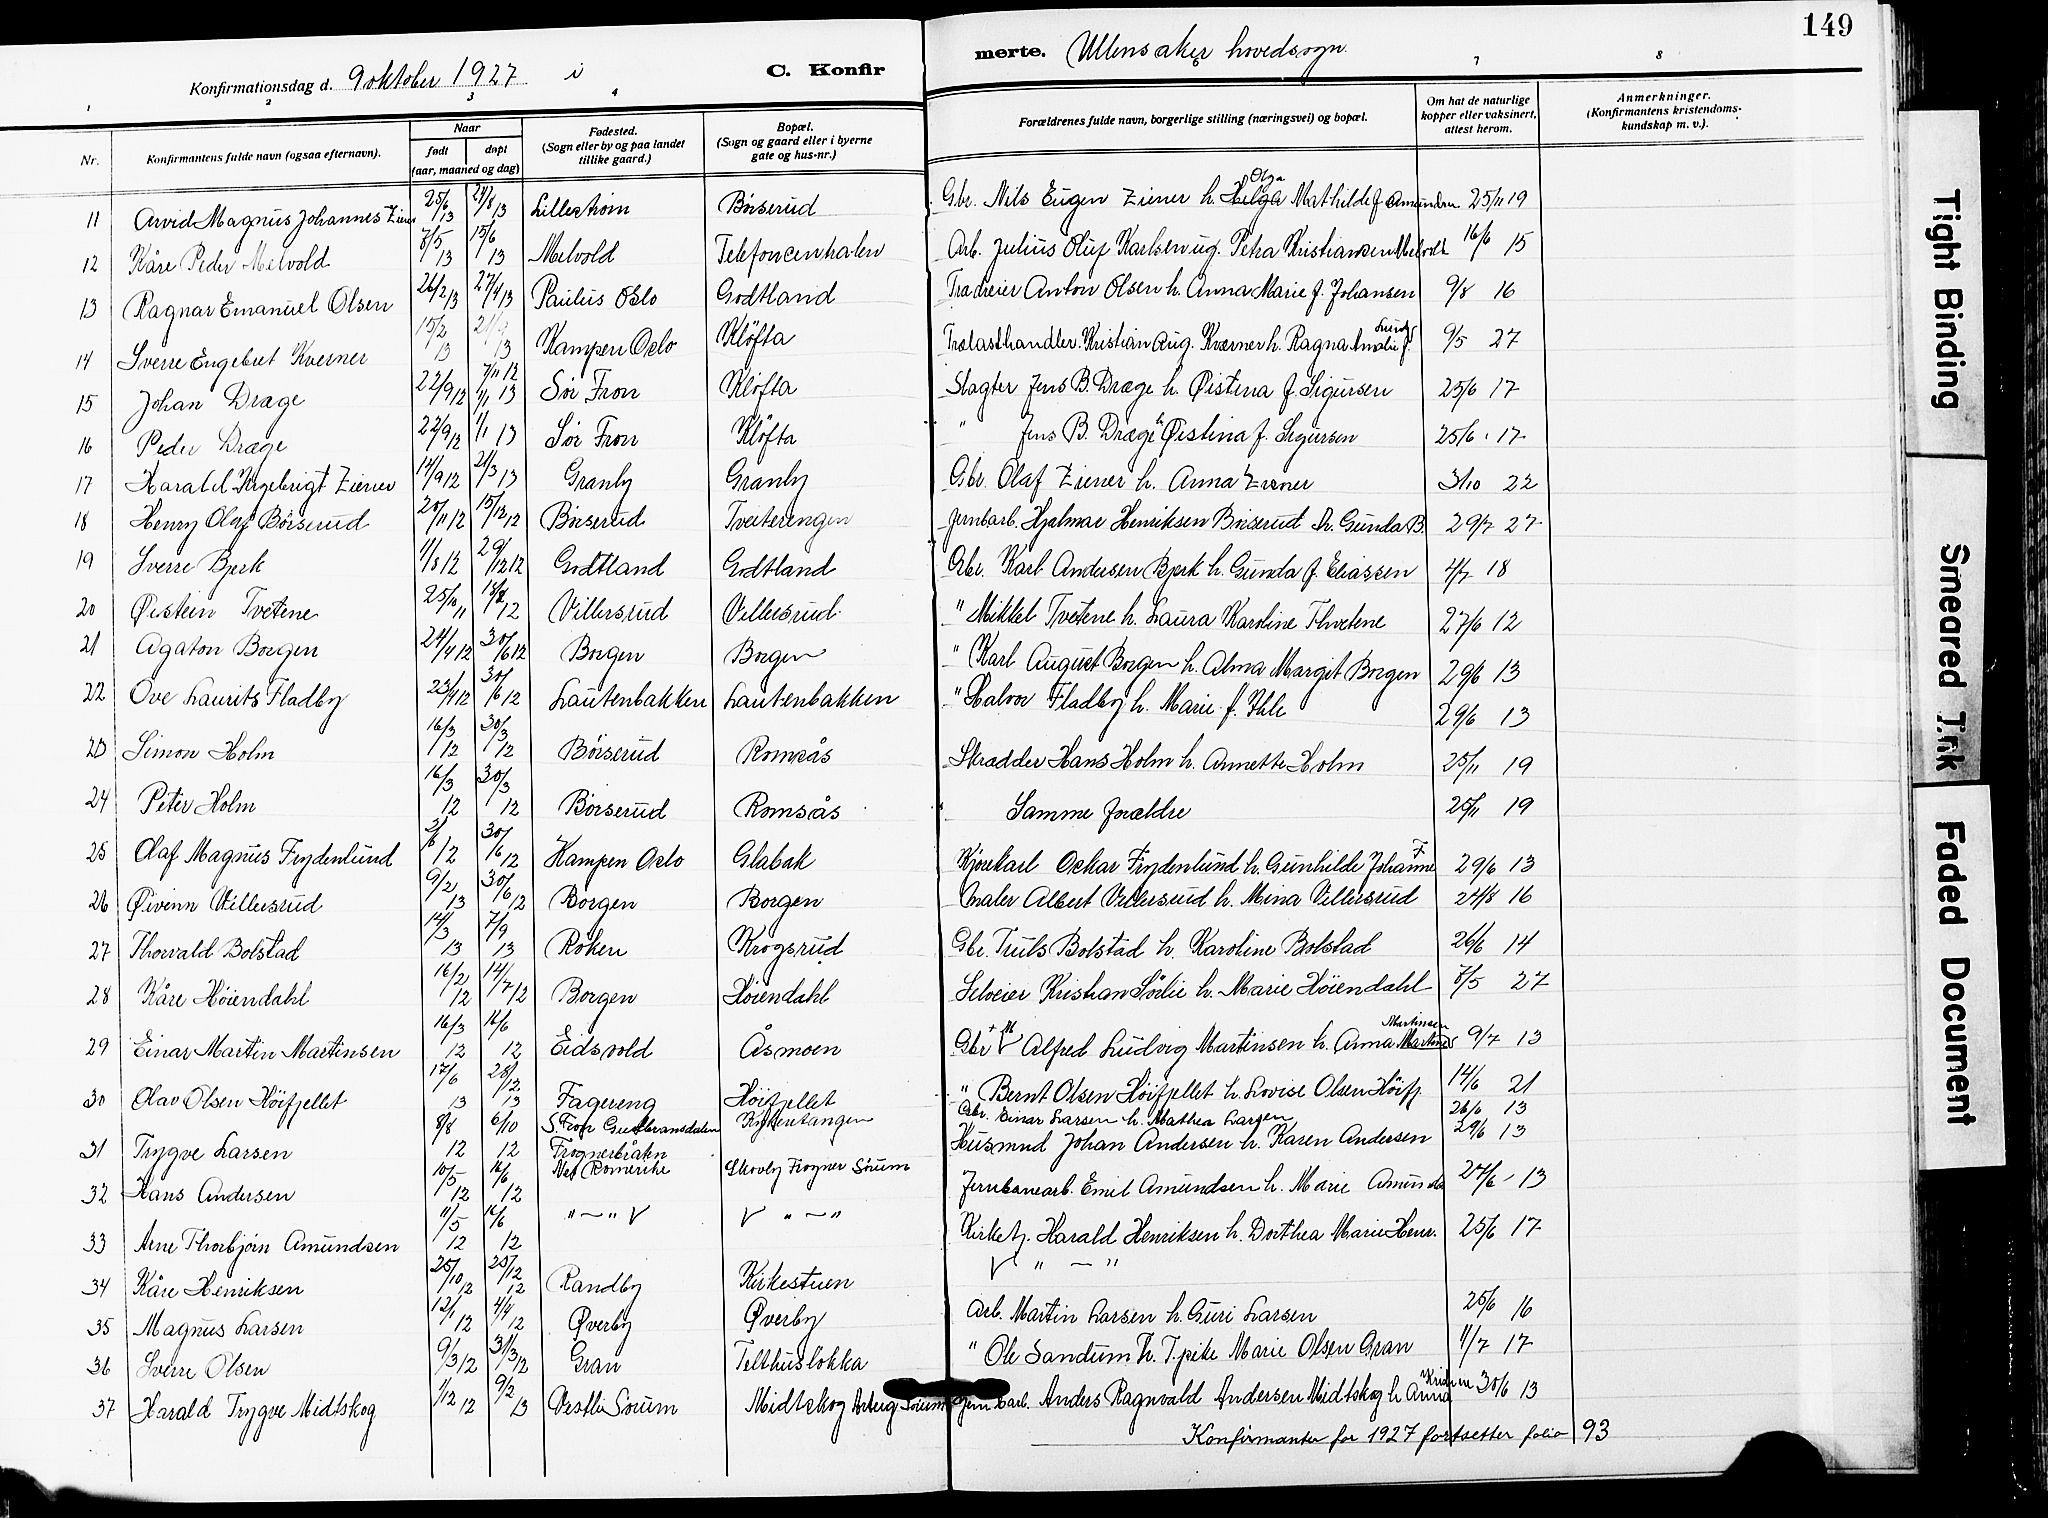 149
Konfirmationsdag d. 9 oktober 1927 i C. Konfirmerte. Ullensaker hovedsogn.
1 2 3 4 7 8
Nr. Konfirmantens fulde navn (ogsaa efternavn). Naar født døpt (aar, maaned og dag) Fødested. (Sogn eller by og paa landet tillike gaard.) Bopæl. (Sogn og gaard eller i byerne gate og hus-nr.) Forældrenes fulde navn, borgerlige stilling (næringsvei) og bopæl. Om hat de naturlige kopper eller vaksinert, attest herom. Anmerkninger. (Konfirmantens kristendomskundskap m. v.).
11 Arvid Magnus Johannes Ziener 25/6 13 24/8 13 Lillestrøm Børserud Gbr. Nils Eugen Ziener h. Helga Olga Mathilde f. Amundsen 25/11 19
12 Kåre Peder Melvold 7/5 13 15/6 13 Melvold Telefoncentralen Arb. Julius Oluf Karlsen ug. Petra Kristiansen Melvold 16/6 15
13 Ragnar Emanuel Olsen 26/2 13 27/4 13 Paulus Oslo Godtland Anton Olsen h. Anna Marie f. Johansen 9/8 16
14 Sverre Engebret Kverner 15/2 13 21/9 13 Kampen Oslo Kløfta Trælasthandler Kristian Aug. Kværner h. Ragna Amalie f. Lund 9/5 27
15 Johan Dræge 22/9 12 7/11 12 1/1 13 Sør Fron Kløfta Slagter Jens B. Dræge h. Øistina f. Sigursen 25/6 17
16 Peder Dræge 22/9 12 1/1 13 Sør Fron Kløfta " Jens B. Dræge h Øistina f. Sigursen 25/6 17
17 Harald Ingebrigt Ziener 14/9 12 21/3 13 Granby Granby Gbr. Olaf Ziener h. Anna Ziener 3/10 22
18 Henry Olaf Børserud 20/11 12 15/12 12 Børserud Tveiterengen Jernbarb. Hjalmar Henriksen Børserud h. Gunda B. 29/7 27
19 Sverre Bjerk 11/8 12 29/12 12 Godtland Godtland Gbr. Karl Andersen Bjerk h. Gunda f. Eliassen 4/7 18
20 Øistein Tvetene 25/10 11 12 Villersrud Villersrud " Mikkel Tvetene h. Laura Karoline Thvetene 27/6 12
21 Agaton Borgen 24/4 12 30/6 12 Borgen Borgen " Karl August Borgen h. Alma Margit Borgen 29/6 13
22 Ove Laurits Fladby 23/4 12 30/6 12 Lautenbakken Lautenbakken " Halvor Fladby h. Marie f. Ihle 29/6 13
23 Simon Holm 16/3 12 30/3 12 Børserud Romsås Skrædder Hans Holm h. Annette Holm 25/11 19
24 Peter Holm 16/3 12 30/3 12 Børserud Romsås Samme forældre 25/11 19
25 Olaf Magnus Frydenlund 2/6 12 30/6 12 Kampen Oslo Glabak Kjørekarl Oskar Frydenlund h. Gunhilde Johanne F. 29/6 13
26 Øivinn Villersrud 9/2 13 30/6 12 Borgen Borgen Maler Albert Villersrud h. Mina Villersrud 24/8 16
27 Thorvald Bolstad 14/3 13 7/9 13 Røken Krogsrud Gbr. Truls Bolstad h. Karoline Bolstad 26/6 14
28 Kåre Høiendahl 16/2 12 14/7 12 Borgen Høiendahl Selveier Kristian Sørlie h. Marie Høiendahl 8/5 27
29 Einar Martin Martinsen 16/3 12 16/6 12 Eidsvold Åsmoen Gbr + M V Alfred Ludvig Martinsen h. Anna Martinsen 9/7 13
30 Olav Olsen Høifjellet 17/6 13 28/12 13 Fagereng Høifjellet " Bernt Olsen Høifjellet h. Lovise Olsen Høifj. 14/6 21
31 Trygve Larsen 8/8 12 6/10 12 S. Fron Gudbransdalen Gbr. Einar Larsen h. Mathea Larsen 26/6 13
32 Hans Andersen 10/5 12 16/6 12 Frognerbråtn Nes Romerike Skovly Frogner Sørum Husmnd Johan Andersen h. Karen Andersen 29/6 13
33 Arne Thorbjørn Amundsen 11/5 12 16/6 12 " — " V V " — " Jernbanearb. Emil Amundsen h. Marie Amunds 27/6 13
34 Kåre Henriksen 25/10 12 25/12 12 Randby Kirkestuen Kirketj. Harald Henriksen h. Dorthea Marie Henr. 25/6 17
V " — "
35 Magnus Larsen 12/1 12 4/4 12 Øverby Øverby Arb. Martin Larsen h. Guri Larsen 25/6 16
36 Sverre Olsen 9/3 12 31/3 12 Gran Telthusløkka " Ole Sandum h. T.pike Marie Olsen Gran 1/7 17
37 Harald Trygve Midtskog 1/12 12 9/2 13 Vestli Sørum Midtskog Sørum Jernb.arb. Anders Ragnvald Andersen Midtskog h. Anna 30/6 13
Konfirmanter for 1927 fortsetter folio 93
Tight Binding
Smeared Ink
Faded Document